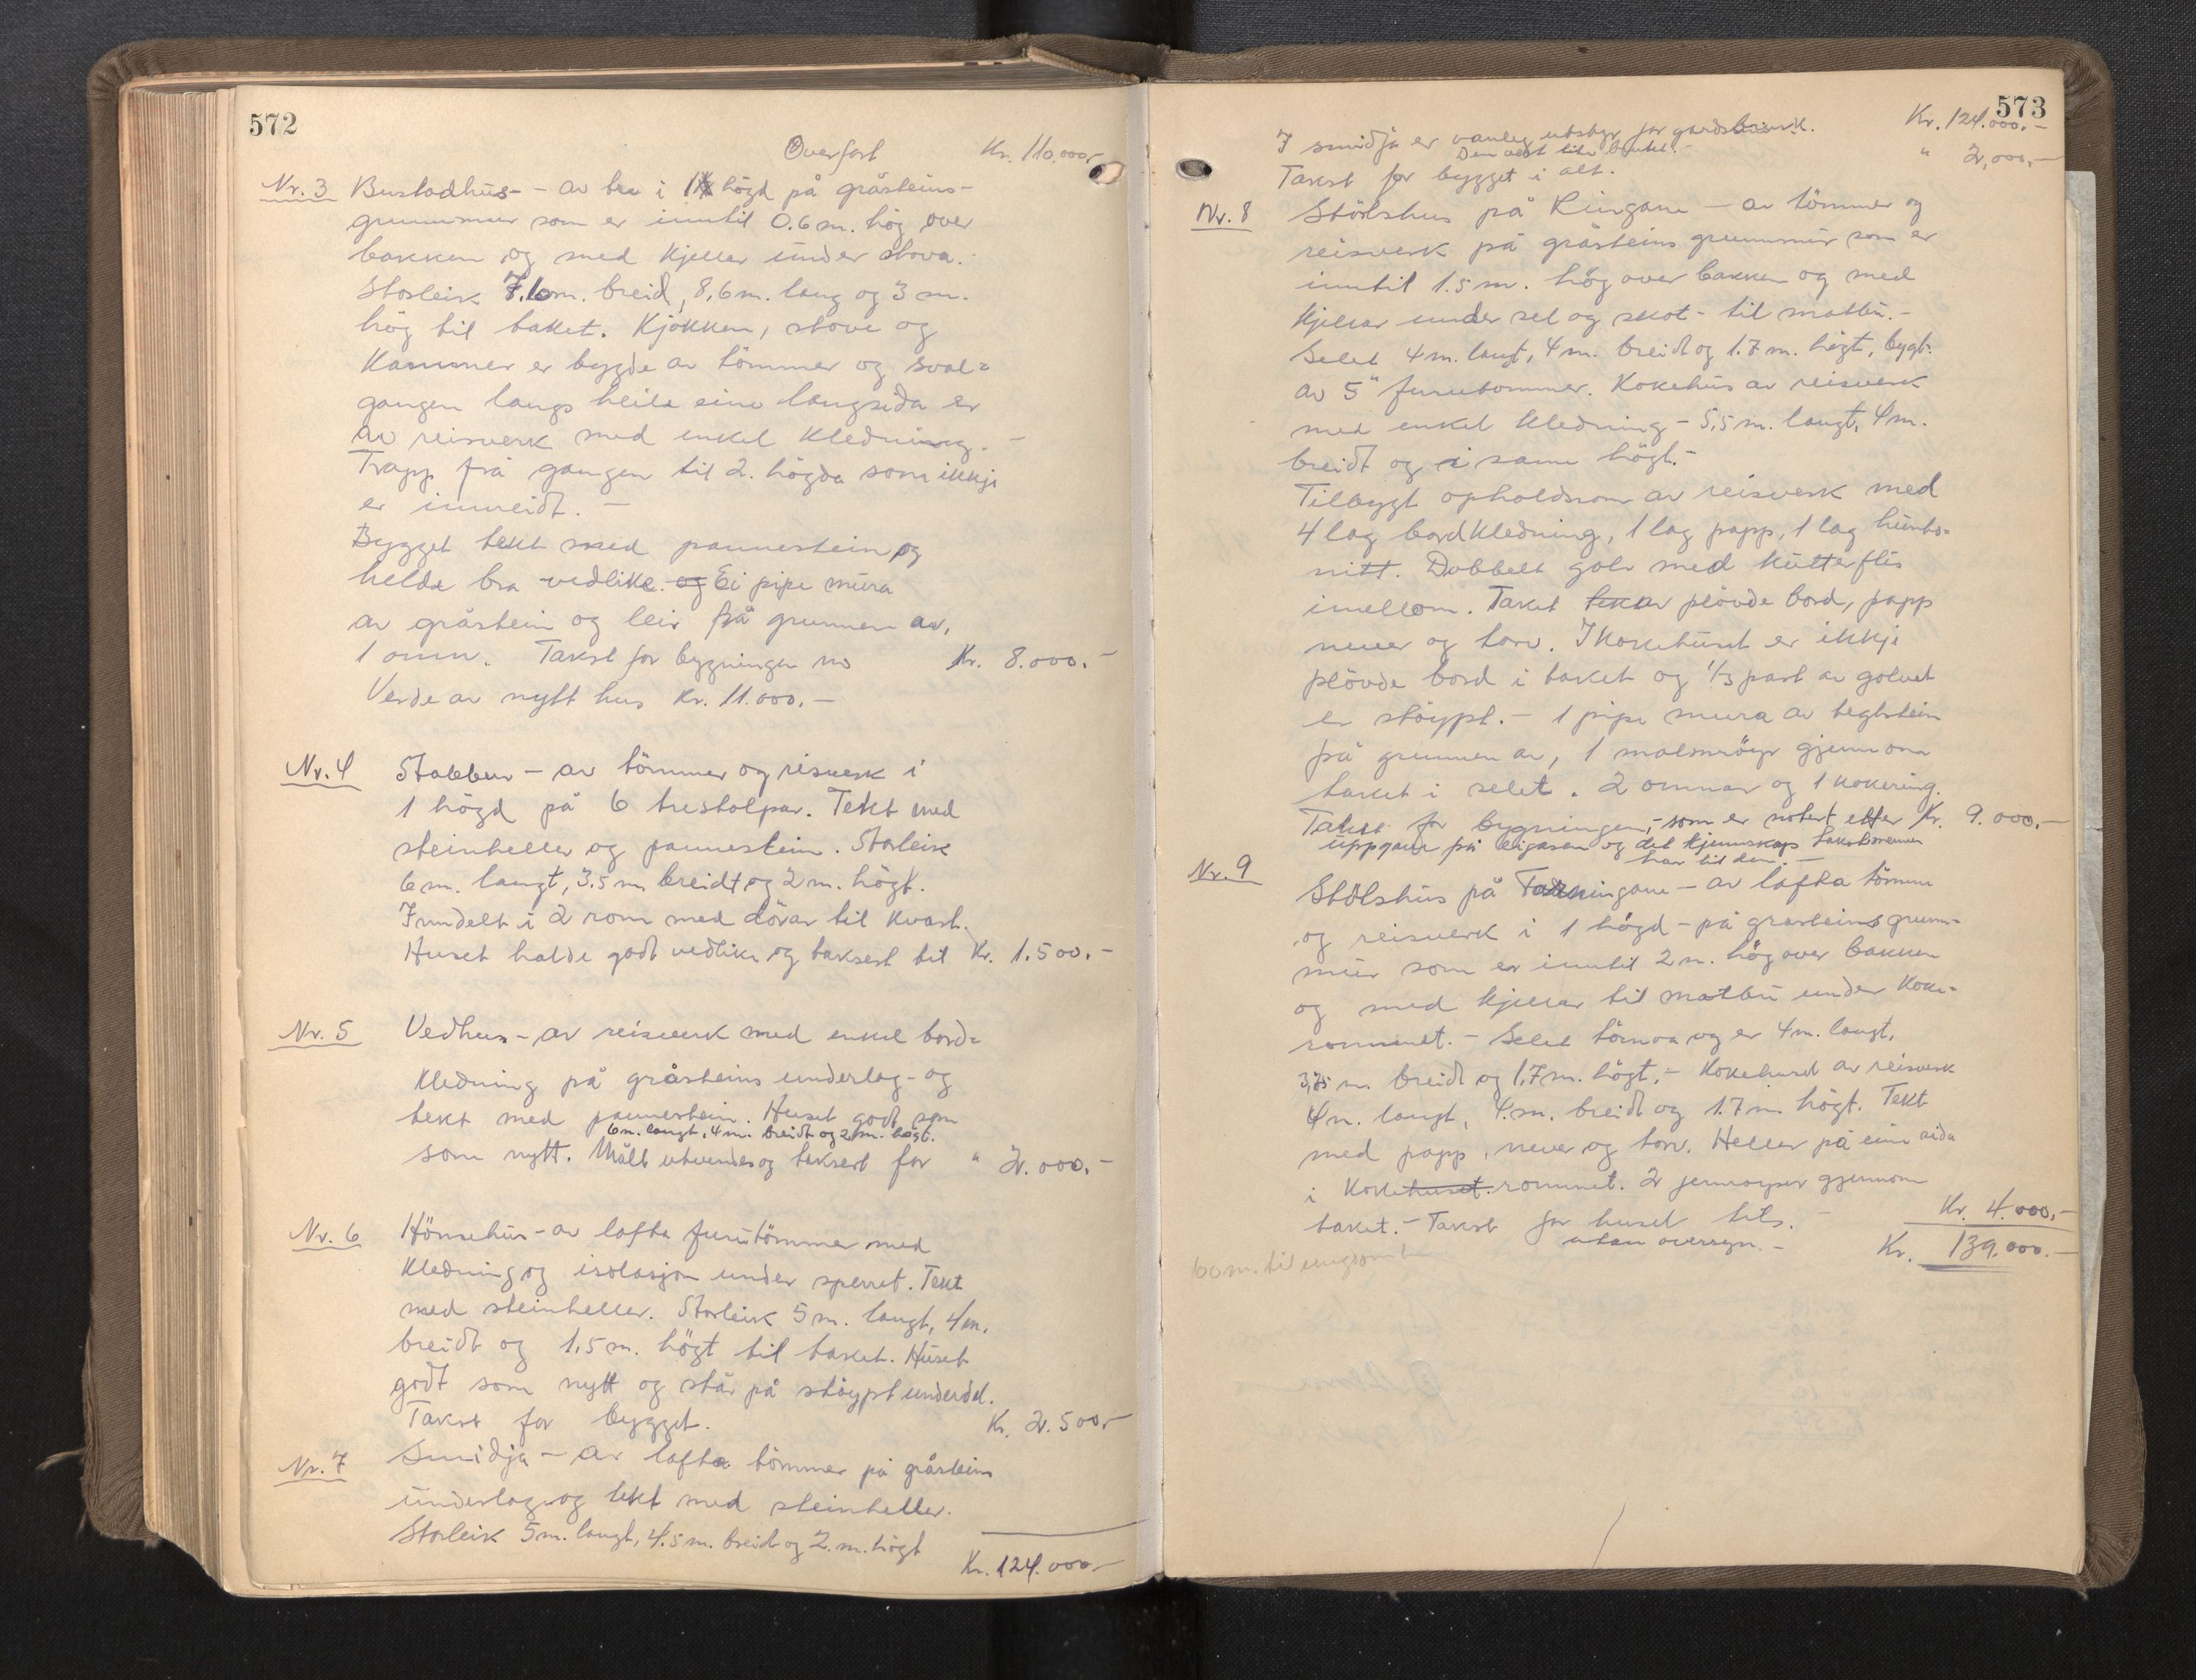 572
Overført Kr. 110.000,-
Nr. 3 Bustadhus - av tre i 1 högd på gråsteins-
grunnmur som er inntil 0.6 m. hög over
bakken og med kjeller under stova.-
Storleik 7,1 m. breid, 8,6 m. lang og 3 m.
hög til taket. Kjökken, stove og
Kammer er bygde av tömmer og sval=
gangen langs heile eine langsida er
av reisverk med enkel kledning. -
Trapp frå gangen til 2. högda som ikkje
er innreidt. -
Bygget tekt med pannestein og
helde bra vedlike. og Ei pipe mura
av gråstein og leir frå grunnen av,
1 omn. Takst for bygningen no Kr. 8.000.-
Verde av nytt hus Kr. 11.000.-
Nr. 4 Stabbur - av tömmer og reisverk i
1 högd på 6 trestolpar. Tekt med
steinheller og pannestein. Storleik
6 m. langt, 3.5 m breidt og 2 m. högt.
Inndelt i 2 rom med dörar til kvart.
Huset halde godt vedlike og taksert til Kr. 1.500.-
Nr. 5 Vedhus - av reisverk med enkel bord=
kledning på gråsteins underlag - og
tekt med pannestein. Huset godt som
6 m. langt, 4 m. breidt og 2 m. högt.
som nytt. Målt utvendes og taksert for " 2.000.-
Nr. 6 Hönsehus - av lafta furutömmer med
kledning og isolasjon under sperret. Tekt
med steinheller. Storleik 5 m. langt, 4 m.
breidt og 1.5 m. högt til taket. Huset
godt som nytt og står på stöypt underdel.
Takst for bygget. Kr. 2.500,-
Nr. 7 Smidja - av lafta tömmer på gråsteins
underlag og tekt med steinheller.
Storleik 5 m. langt, 4.5 m. breidt og 2. m. högt
Kr. 124.000,-
573
I smidja er vanleg utstyr for gardsbruk. Kr. 124.000.-
Den vert lite brukt.-
Takst for bygget i alt. " 2,000,-
Nr. 8 Stölshus på Ringane - av tömmer og
reisverk på gråsteins grunnmur som er
inntil 1.5 m. hög over bakken og med
kjellar under sel og skot - til matbu.-
Selet 4 m. langt, 4 m. breidt og 1.7 m. högt, bygt
av 5" furutommer. Kokehus av reisverk
med enkel kledning - 5,5 m. langt, 4 m.
breidt og i same högt.-
Tilbygt opholdsrom av reisverk med
4 lag bordkledning, 1 lag papp, 1 lag hunto-
nitt. Dobbelt golv med kutterflis
imellom. Taket tekt av plövde bord, papp
never og torv. I kokehuset er ikkje
plövde bord i taket og 1/3 part av golvet
er stöypt. - 1 pipe mura av teglstein
frå grunnen av, 1 malmröyr gjennom
taket i selet. 2 omnar og 1 kokering.
Takst for bygningen,- som er notert etter Kr. 9.000,-
uppgave frå eigaren og det kjennskap takstnemnda
har til den. -
Nr. 9 Stölshus på - av lafta tömmer
og reisverk i 1 högd - på gråsteins grunn-
mur som er inntil 2 m. hög over bakken
og med kjellar til matbu under koke-
rommet. - Selet tömra og er 4 m. langt,
3,75 m. breidt og 1,7 m. högt.- Kokehuset av reisverk
4 m. langt, 4. m. breidt og 1.7 m. högt. Tekt
med papp, never og torv. Heller på ein side
i kokehuset. rommet. 2 jernröyser gjennom
taket. - Takst for huset Kr. 4.000,-
utan oversyn. - Kr. 139.000.-
60 m. til